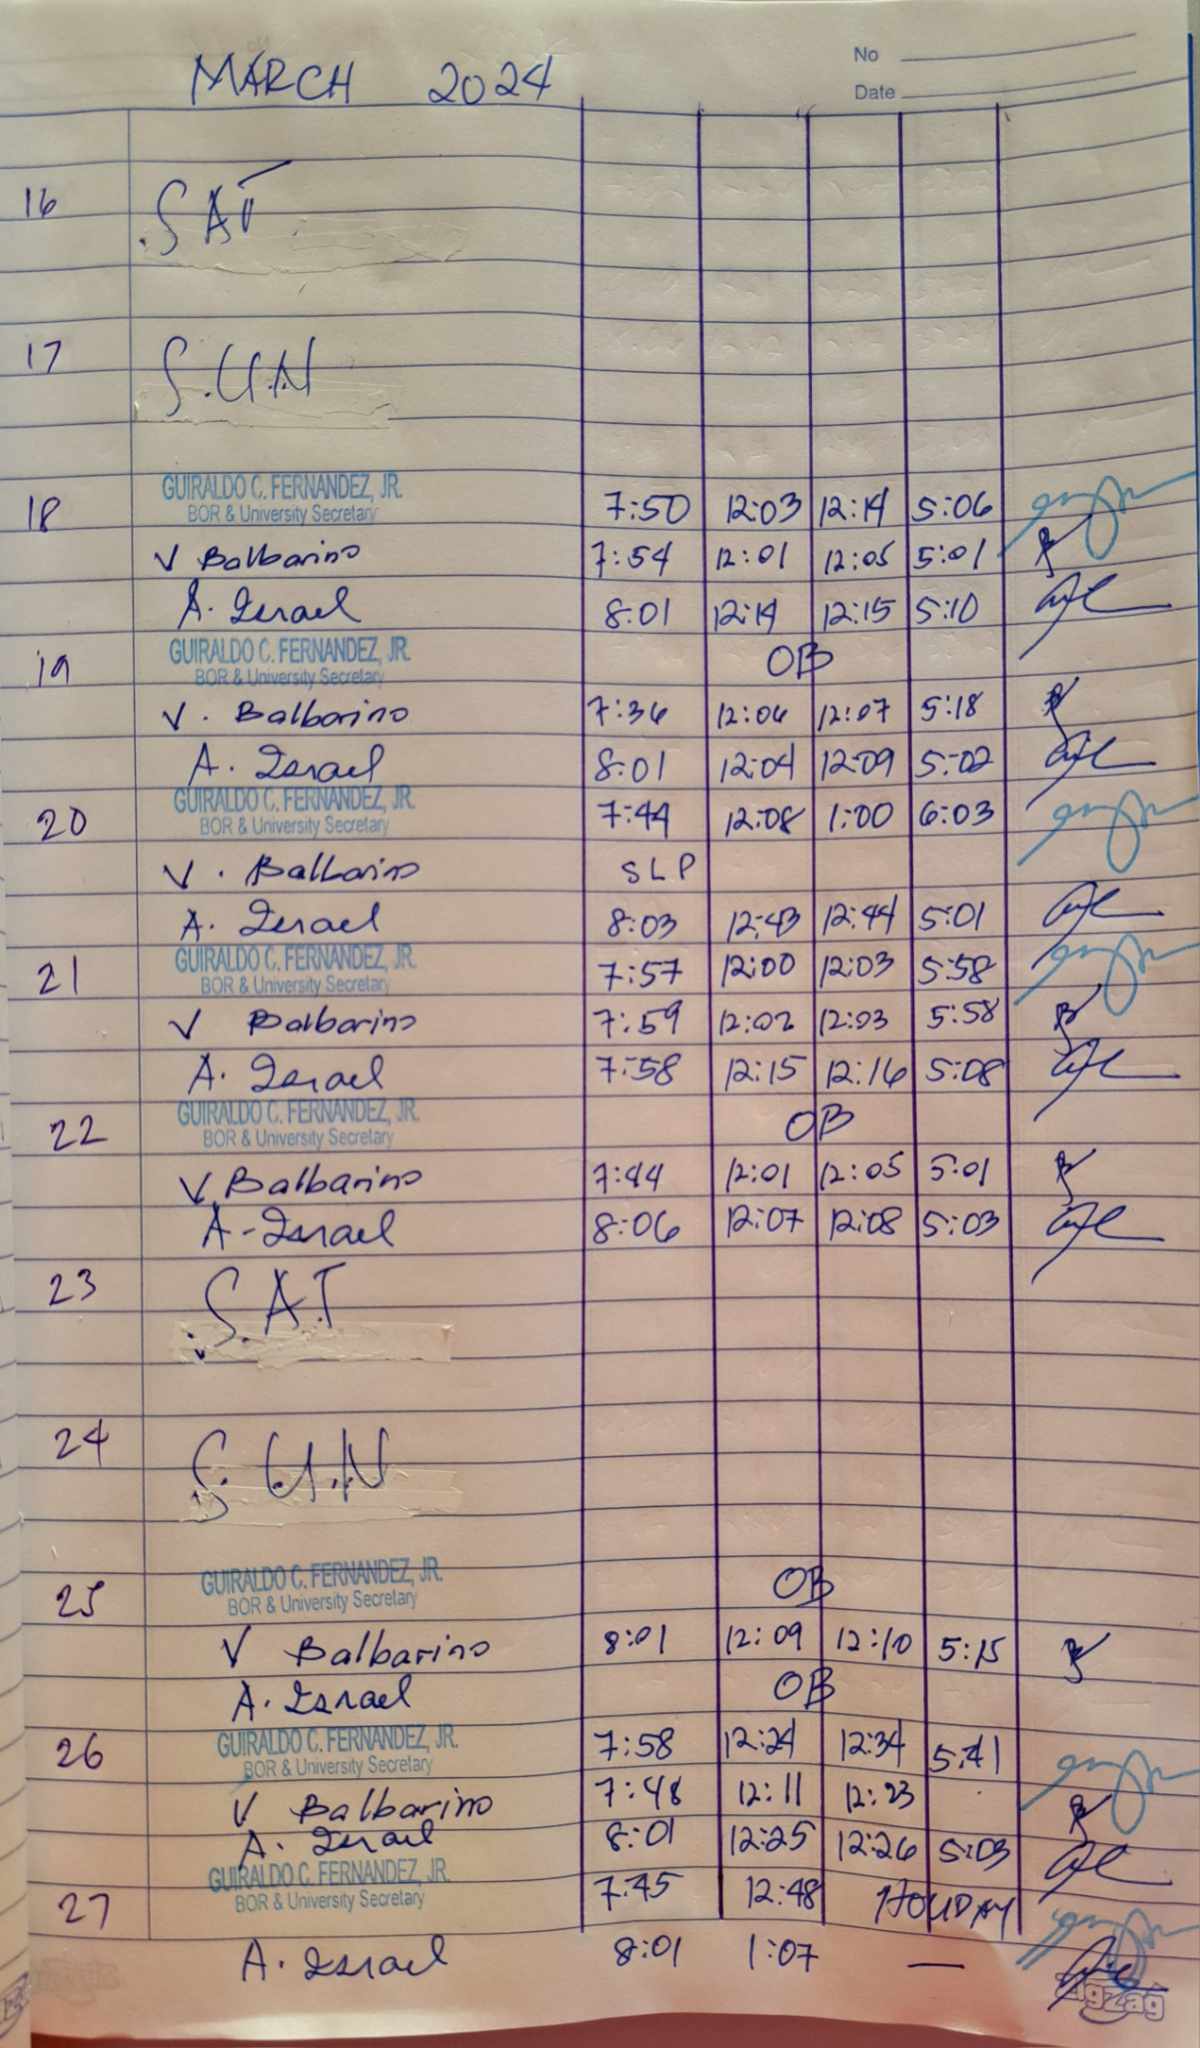 No
MARCH 2024
Date
16 SAT
17 S.U.N
GUIRALDO C. FERNANDEZ, JR.
18 BOR & University Secretary 7:50 12:03 12:14 5:06
V Balbarino 7:54 12:01 12:05 5:01
A. Israel 8:01 12:14 12:15 5:10
GUIRALDO C. FERNANDEZ, JR. OB
19 BOR & University Secretary
V. Balbarino 7:36 12:06 12:07 5:18
A. Israel 8:01 12:04 12:09 5:02
GUIRALDO C. FERNANDEZ, JR.
20 BOR & University Secretary 7:44 12:08 1:00 6:03
V. Balbarino SLP
A. Israel 8:03 12:43 12:44 5:01
GUIRALDO C. FERNANDEZ, JR.
21 BOR & University Secretary 7:57 12:00 12:03 5:58
V Balbarino 7:59 12:02 12:03 5:58
A. Israel 7:58 12:15 12:16 5:08
GUIRALDO C. FERNANDEZ, JR. OB
22 BOR & University Secretary
V. Balbarino 7:44 12:01 12:05 5:01
A-Israel 8:06 12:07 12:08 5:03
23 S.A.T
24 S.U.N
GUIRALDO C. FERNANDEZ, JR. OB
25 BOR & University Secretary
V Balbarino 8:01 12:09 12:10 5:15
A. Israel OB
GUIRALDO C. FERNANDEZ, JR.
26 BOR & University Secretary 7:58 12:24 12:34 5:41
V Balbarino 7:48 12:11 12:23
A. Israel 8:01 12:25 12:26 5:03
GUIRALDO C. FERNANDEZ, JR.
27 BOR & University Secretary 7:45 12:48 HOLIDAY
A. Israel 8:01 1:07 —
zigzag